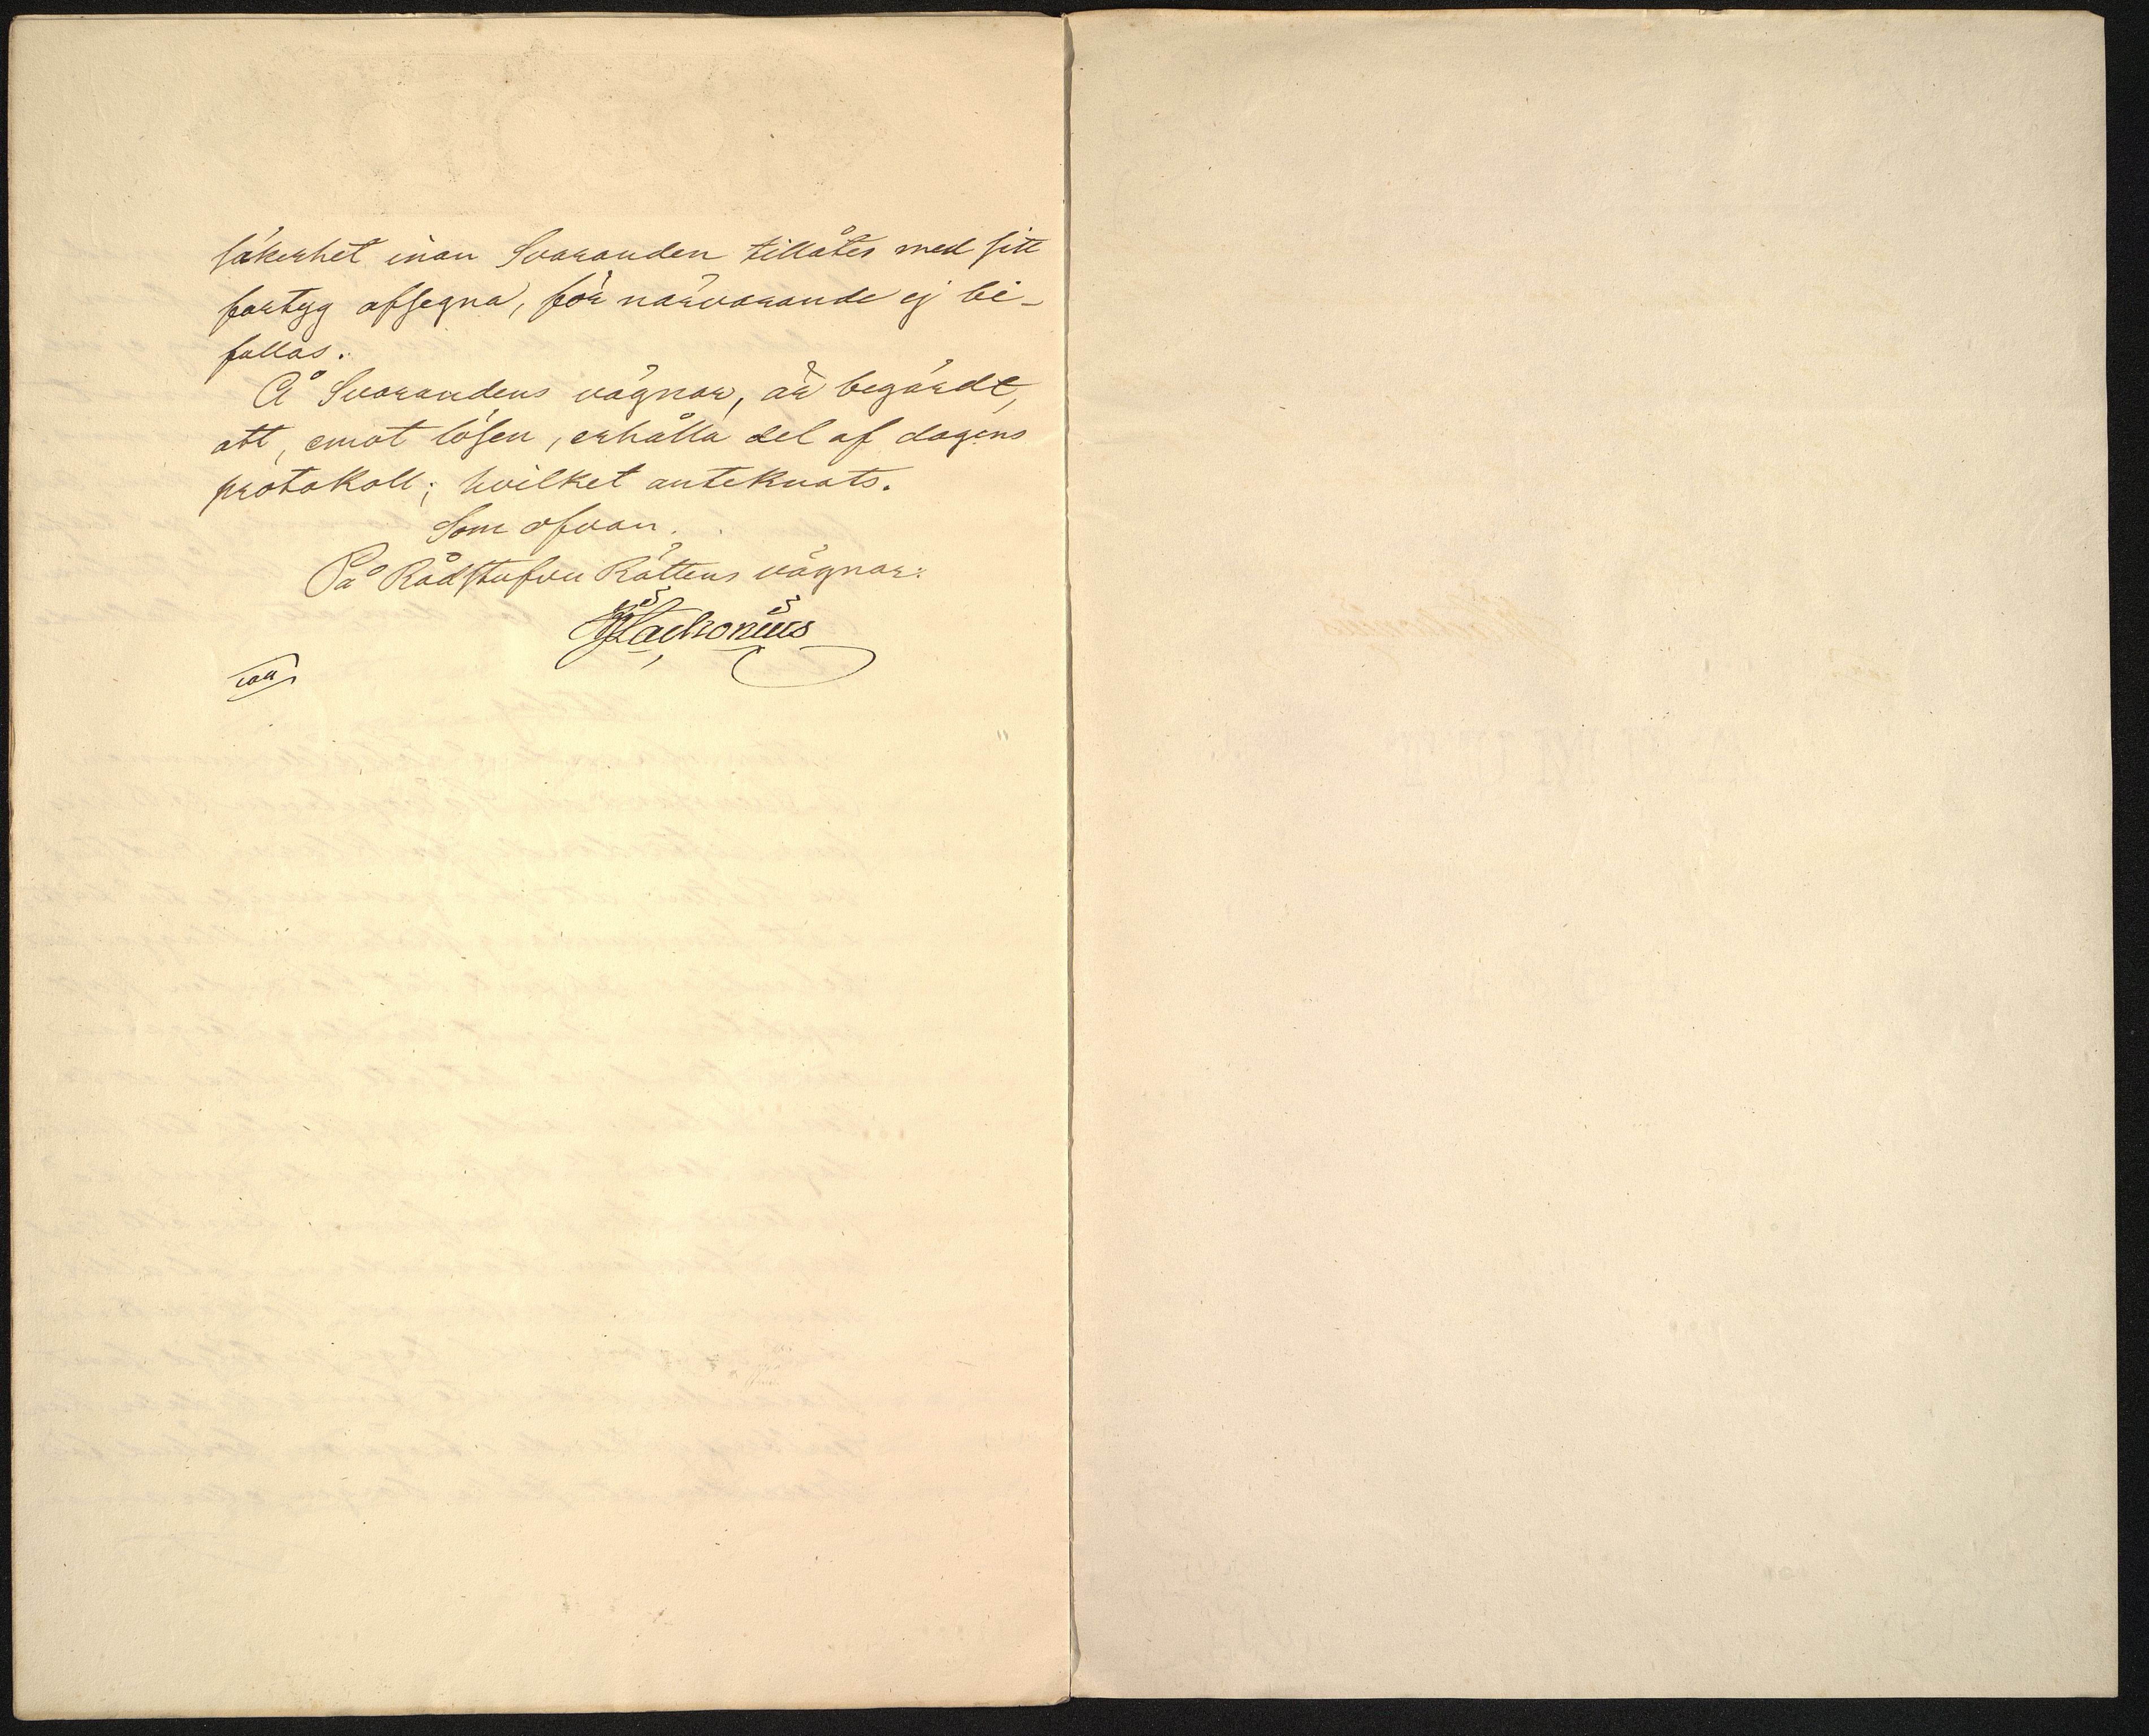 säkerhet inan Svaranden tillåtes med sitt
fartyg afsegna, för närvarande ej bi-
fallas.
Å Svarandens vägnar, är begärdt,
att, emot lösen, erhålla del af dagens
protokoll; hvilket anteknats.
Som ofvan.
På Rådstufvu Rättens vägnar: